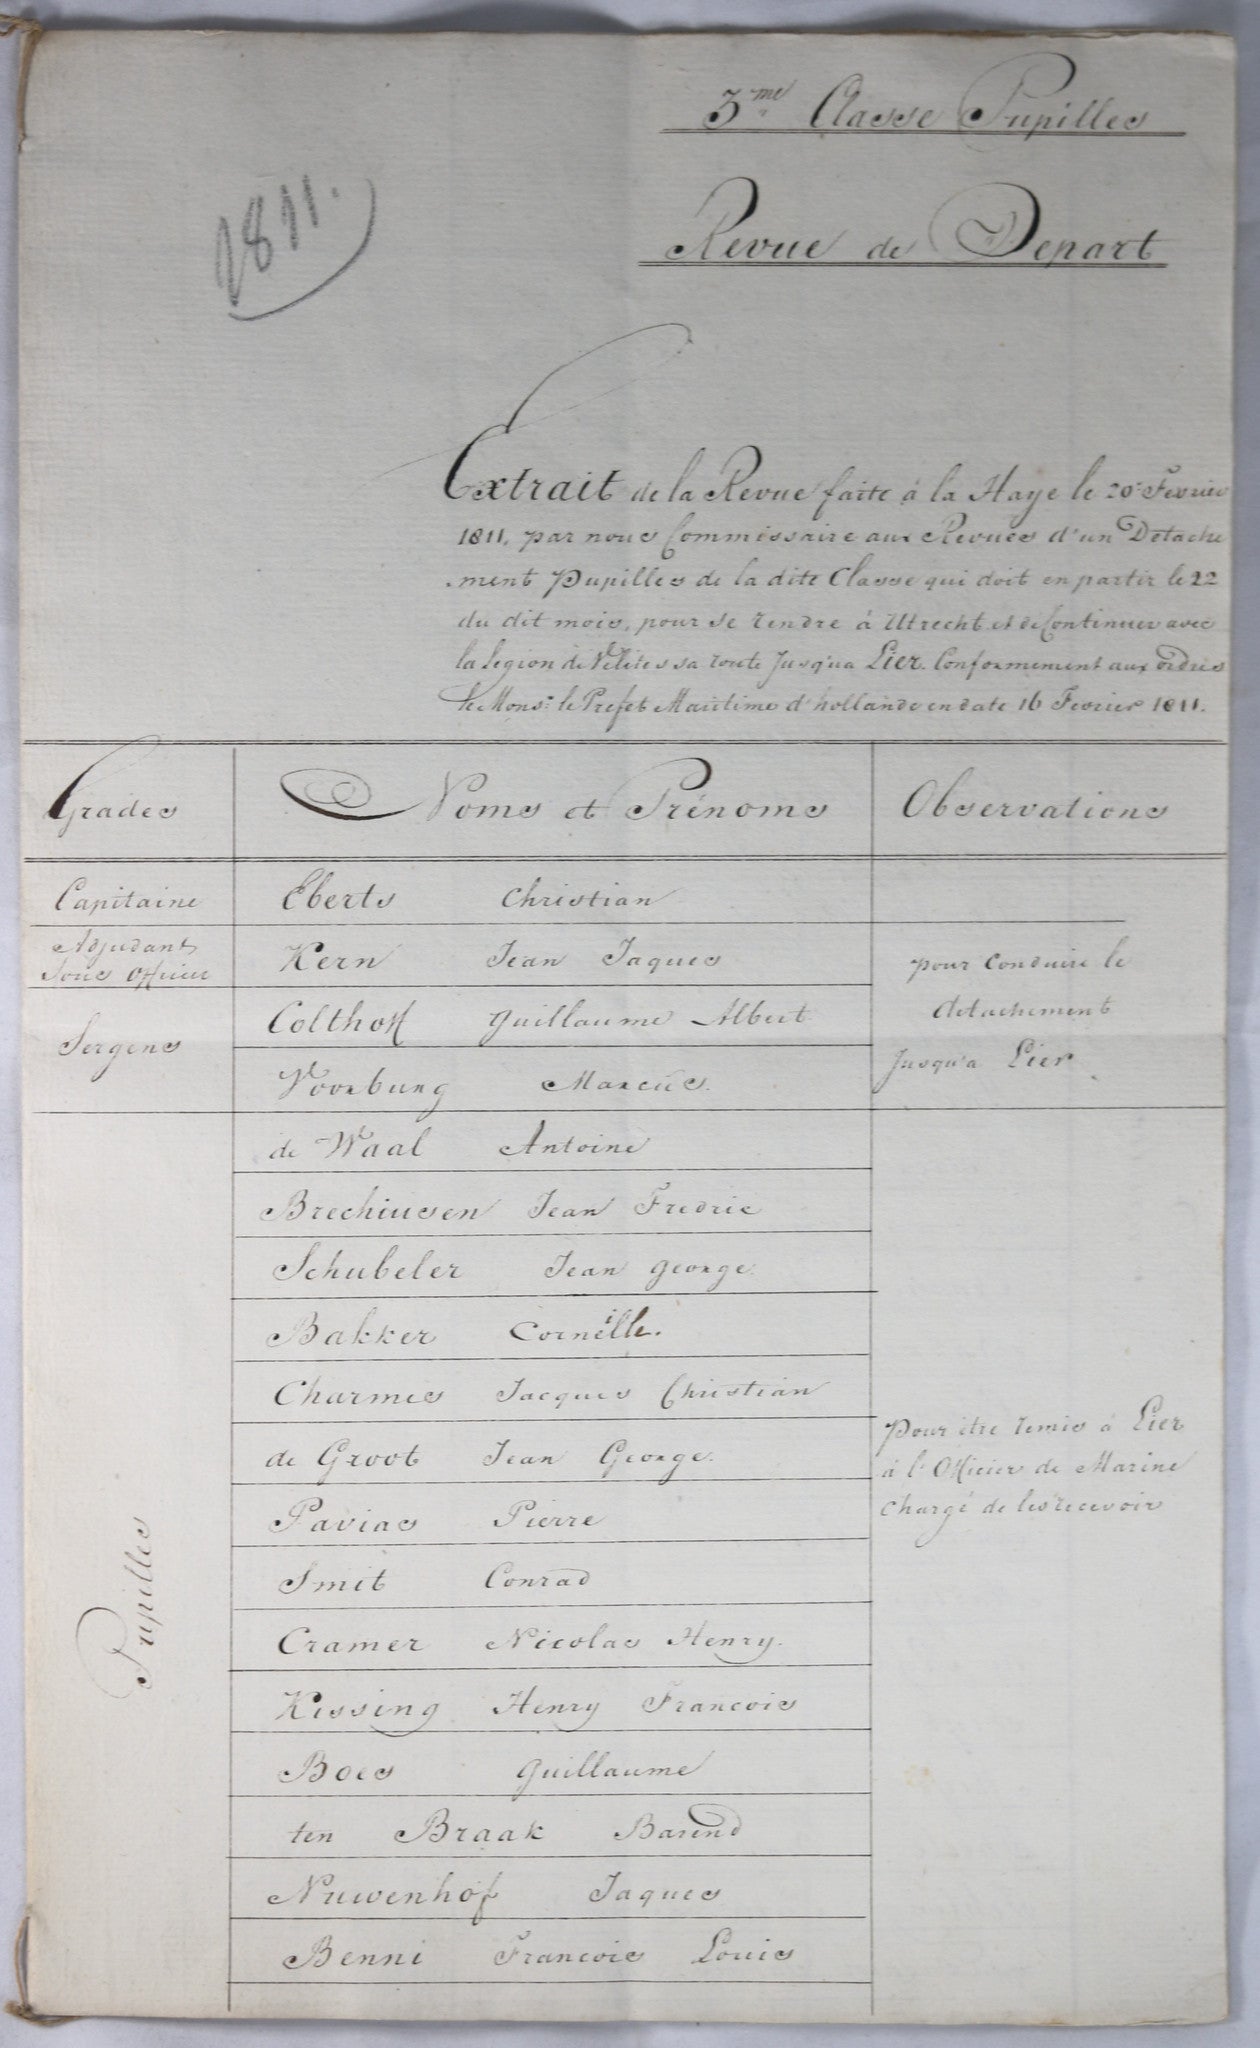 3.me Classe Pupilles
1811.
Revue de Depart
Extrait de la Revue faite á la Haye le 20e Fevrier
1811, par nous Commissaire aux Revues d'un Detache
-ment Pupilles de la dite Classe qui doit en partir le 22
du dit mois, pour se rendre á Utrecht et de Continuer avec
la Legion de Velites sa route Jusqu'a Lier. Conformement aux ordres
de Monsr. le Prefet Maritime d'hollande en date 16 Fevrier 1811.
Grades Noms et Prénoms Observations
Capitaine Eberts Christian
Adjudant
Sous Officier Kern Jean Jaques pour Conduire le
Sergens Colthoff Guillaume Albert detachement
Voorburg Marcus. Jusqu'a Lier
de Waal Antoine
Brechiusen Jean Fredric
Schubeler Jean George.
Bakker Corneille.
Charmes Jacques Christian
de Groot Jean George.
Pour étre remis á Lier
á l'Officier de Marine
Chargé de les recevoir
Pupilles
Pavias Pierre
Smit Conrad
Cramer Nicolas Henry.
Kissing Henry Francois
Boes Guillaume
ten Braak Barend
Nuwenhof Jaques
Benni Francois Louis